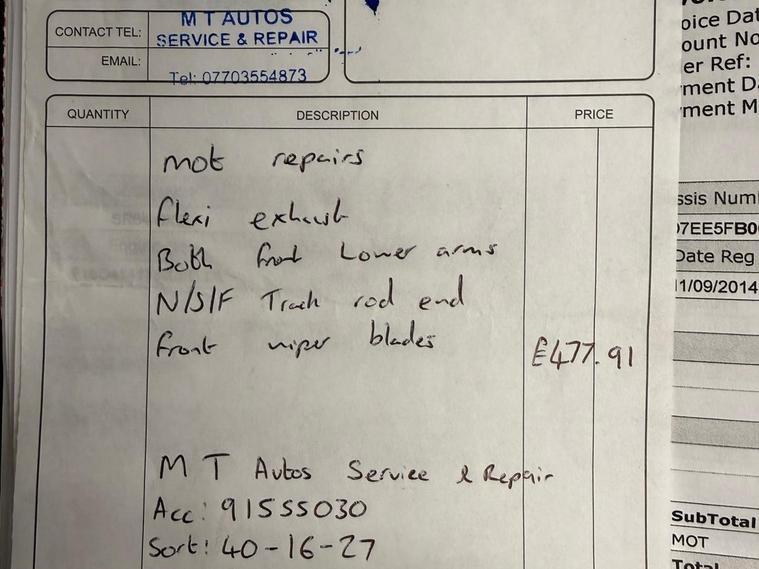 CONTACT TEL:
M T AUTOS
SERVICE & REPAIR
EMAIL:
Tel: 07703554873
QUANTITY DESCRIPTION PRICE
mot repairs
flexi exhaust
Both front Lower arms
N/S/F Track rod end
front wiper blades
£477.91
M T Autos Service & Repair
Acc: 91555030
Sort: 40-16-27
oice Dat
ount No
er Ref:
ment D
ment M
ssis Num
07EE5FB0
Date Reg
11/09/2014
SubTotal
MOT
Total